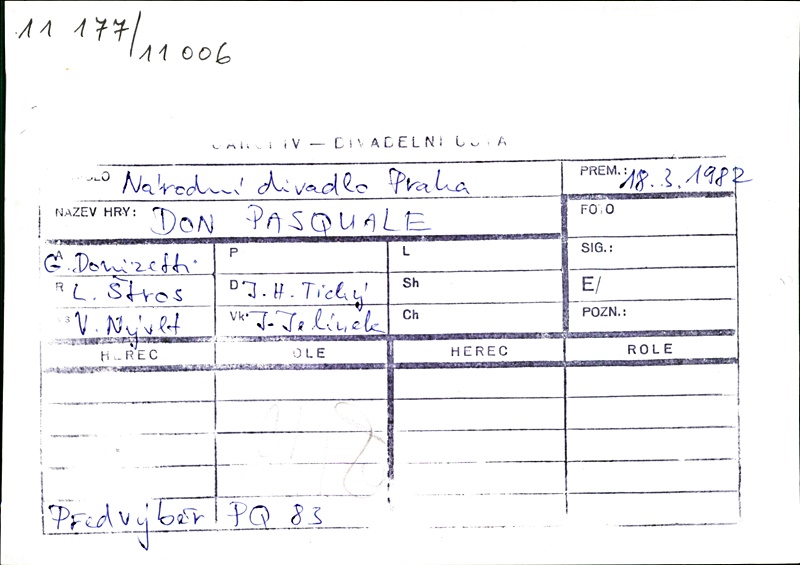 11 177/11 006
— DIVADELNÍ
Národní divadlo Praha PREM.: 18.3.1982
NÁZEV HRY: DON PASQUALE FOTO
A G. Donizetti P L SIG.:
R L. Štros D J.H. Tichý Sh E/
V. Nývlt Vk J. Jelínek Ch POZN.:
HEREC ROLE HEREC ROLE
Předvýběr PQ 83